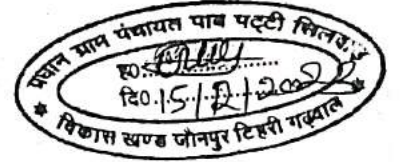 प्रधान ग्राम पंचायत पाब पट्टी सिलवाड़
ह0
दि0. 15/12/20
विकास खण्ड जौनपुर टिहरी गढ़वाल